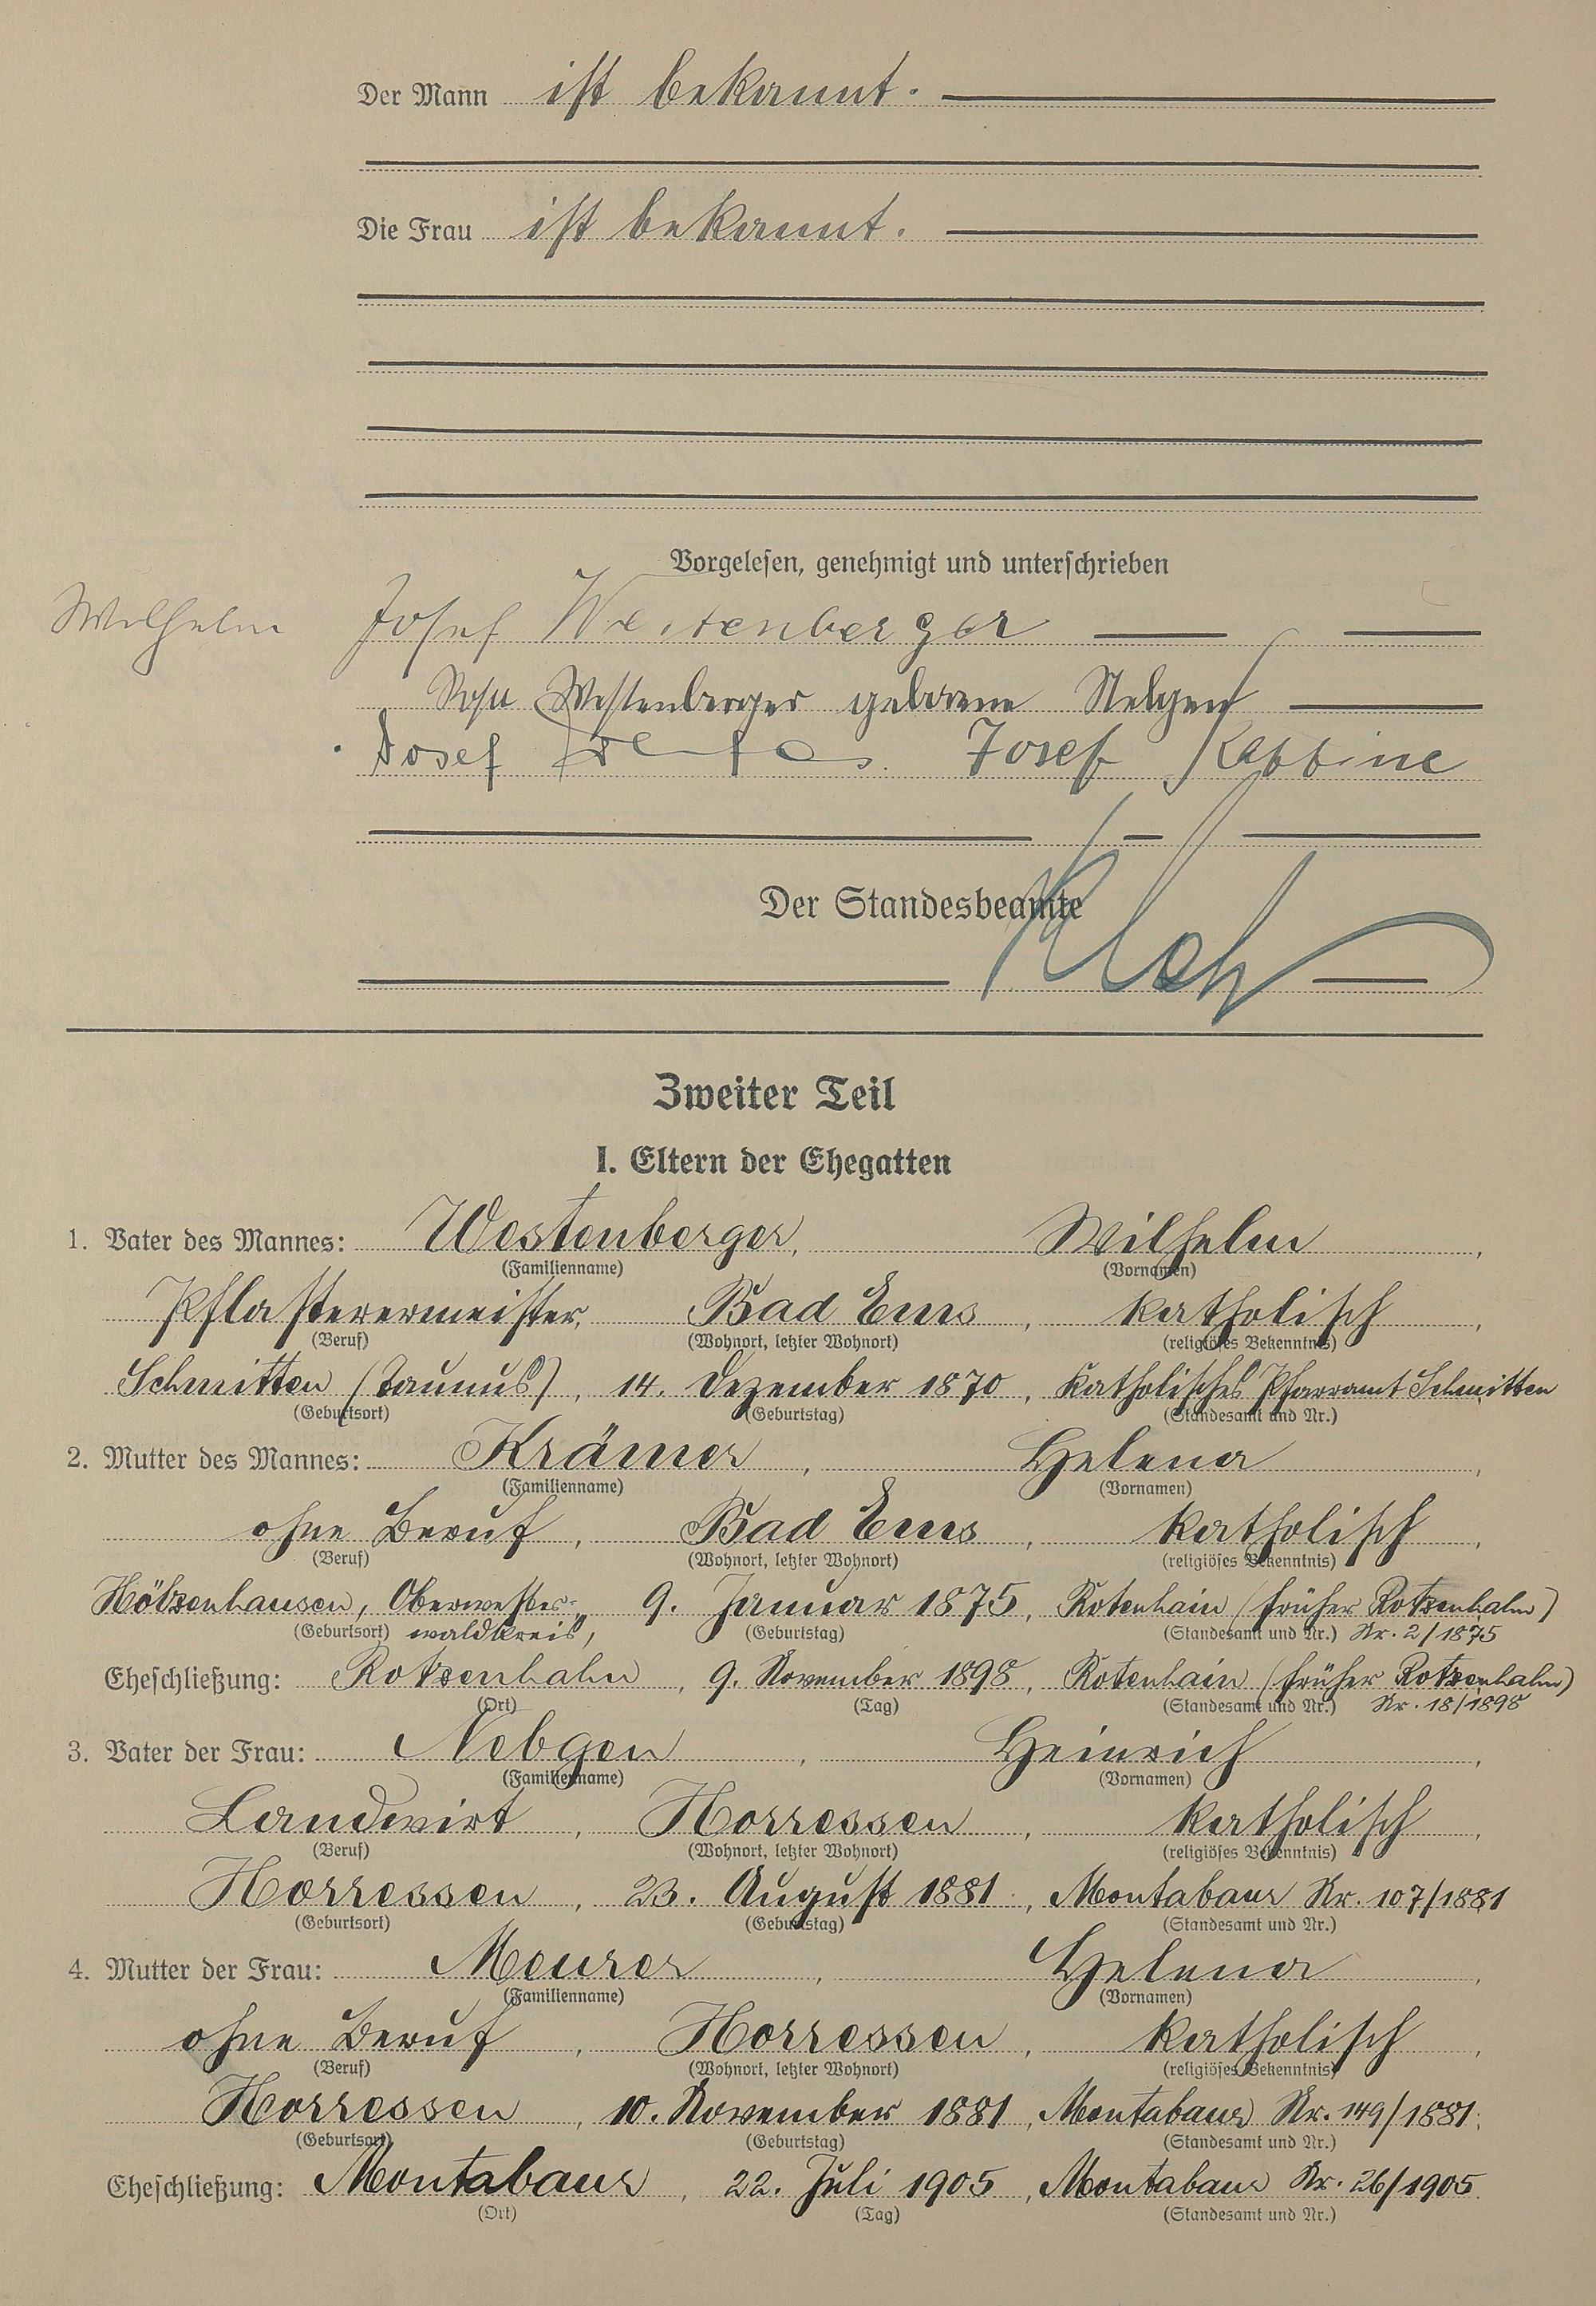 Der Mann ist bekannt.
Die Frau ist bekannt.
Vorgelesen, genehmigt und unterschrieben
Wilhelm Josef Westenberger
Westenberger geborene Nebgen
Josef Josef
Der Standesbeamte
Zweiter Teil
I. Eltern der Ehegatten
1. Vater des Mannes: Westenberger, Wilhelm,
(Familienname) (Vornamen)
Pflasterermeister, Bad Ems, katholisch,
(Beruf) (Wohnort, letzter Wohnort) (religiöses Bekenntnis)
Schmitten (Taunus), 14. Dezember 1870, Katholisches Pfarramt Schmitten
(Geburtsort) (Geburtstag) (Standesamt und Nr.)
2. Mutter des Mannes: Krämer, Helena,
(Familienname) (Vornamen)
ohne Beruf, Bad Ems, katholisch,
(Beruf) (Wohnort, letzter Wohnort) (religiöses Bekenntnis)
Hölzenhausen, Oberwester- 9. Januar 1875, Rotenhain (früher Rotzenhahn)
(Geburtsort) waldkreis, (Geburtstag) (Standesamt und Nr.) Nr. 2/1875
Eheschließung: Rotzenhahn, 9. November 1898, Rotenhain (früher Rotzenhahn)
(Ort) (Tag) (Standesamt und Nr.) Nr. 18/1898
3. Vater der Frau: Nebgen, Heinrich,
(Familienname) (Vornamen)
Landwirt, Horressen, katholisch,
(Beruf) (Wohnort, letzter Wohnort) (religiöses Bekenntnis)
Horressen, 23. August 1881, Montabaur Nr. 107/1881
(Geburtsort) (Geburtstag) (Standesamt und Nr.)
4. Mutter der Frau: Meurer, Helena,
(Familienname) (Vornamen)
ohne Beruf, Horressen, katholisch,
(Beruf) (Wohnort, letzter Wohnort) (religiöses Bekenntnis)
Horressen, 10. November 1881, Montabaur Nr. 149/1881.
(Geburtsort) (Geburtstag) (Standesamt und Nr.)
Eheschließung: Montabaur, 22. Juli 1905, Montabaur Nr. 26/1905.
(Ort) (Tag) (Standesamt und Nr.)